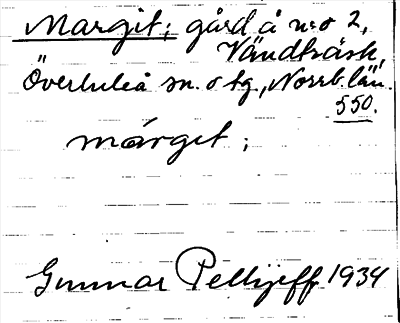 Margit; gård å n:o 2,
Vändträsk,
Överluleå sn. o tg., Norrb. län.
550.
márget;
Gunnar Pellijeff 1934